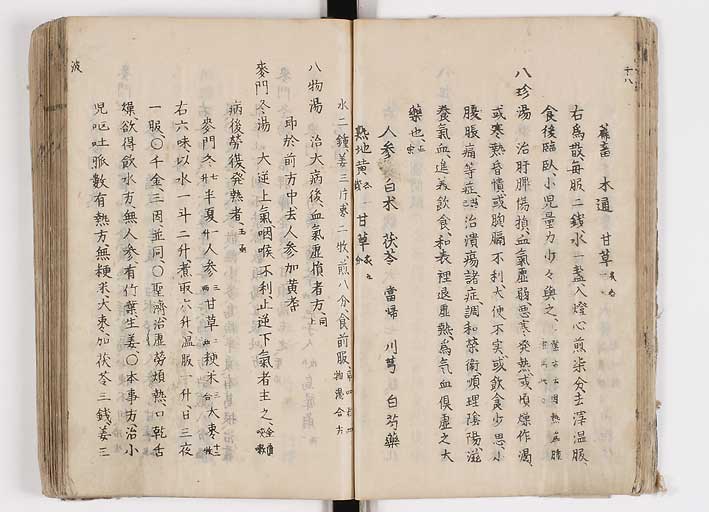 萹蓄 木通 甘草
右為散毎服二錢水一盞入燈心煎柒分去滓温服
食後臨臥小児量力少々與之
八珍湯 治肝脾傷損血氣虚弱悪寒発熱或煩燥作渇
或寒熱昏憒或胸膈不利大便不実或飲食少思小
腹脹痛等症 治潰瘍諸症調和榮衛順理陰陽滋
養氣血進美飲食和表裡退虚熱為氣血俱虚之大
藥也
人参 白朮 茯苓 當帰 川芎 白芍藥
熟地黄 甘草
水二鍾姜三片棗二枚煎八分食前服
八物湯 治大病後血氣虚憒者方
即於前方中去人参加黄芪
麥門冬湯 大逆上氣咽喉不利止逆下氣者主之
病後勞復発熱者
麥門冬七升半夏一升人参三両甘草二両粳米三合大棗十二枚
右六味以水一斗二升煮取六升温服一升日三夜
一服〇千金三因並同〇聖濟治虚勞煩熱口乾舌
燥欲得飲水方無人参有竹葉生姜〇本事方治小
児嘔吐脈數有熱方無粳米大棗加茯苓三錢姜三
十八
波